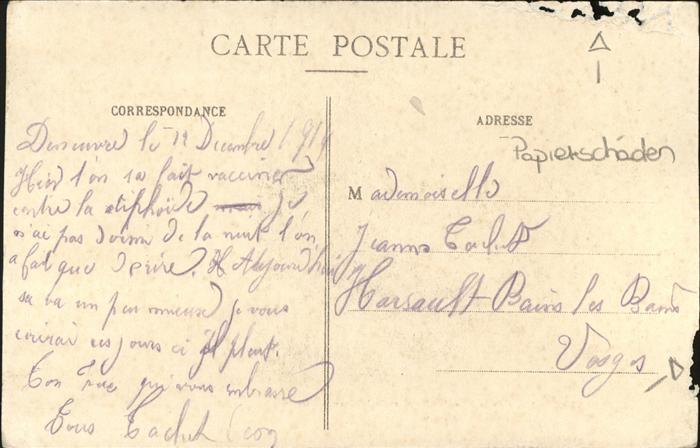 CARTE POSTALE
CORRESPONDANCE
Deneuvre le 12 Decembre 1914
Hier l'on sa fait vacciner
contre la tiphoïde je
n'ai pas dormi de la nuit l'on
a fait que de rire. Aujourd'hui
sa va un peu mieux je vous
ecrirai ces jours ci il pleut.
Ton qui vous embrasse
Tous
ADRESSE
Papierschäden
Mademoiselle
Jeanne
Harsault Bains les Bains
Vosges